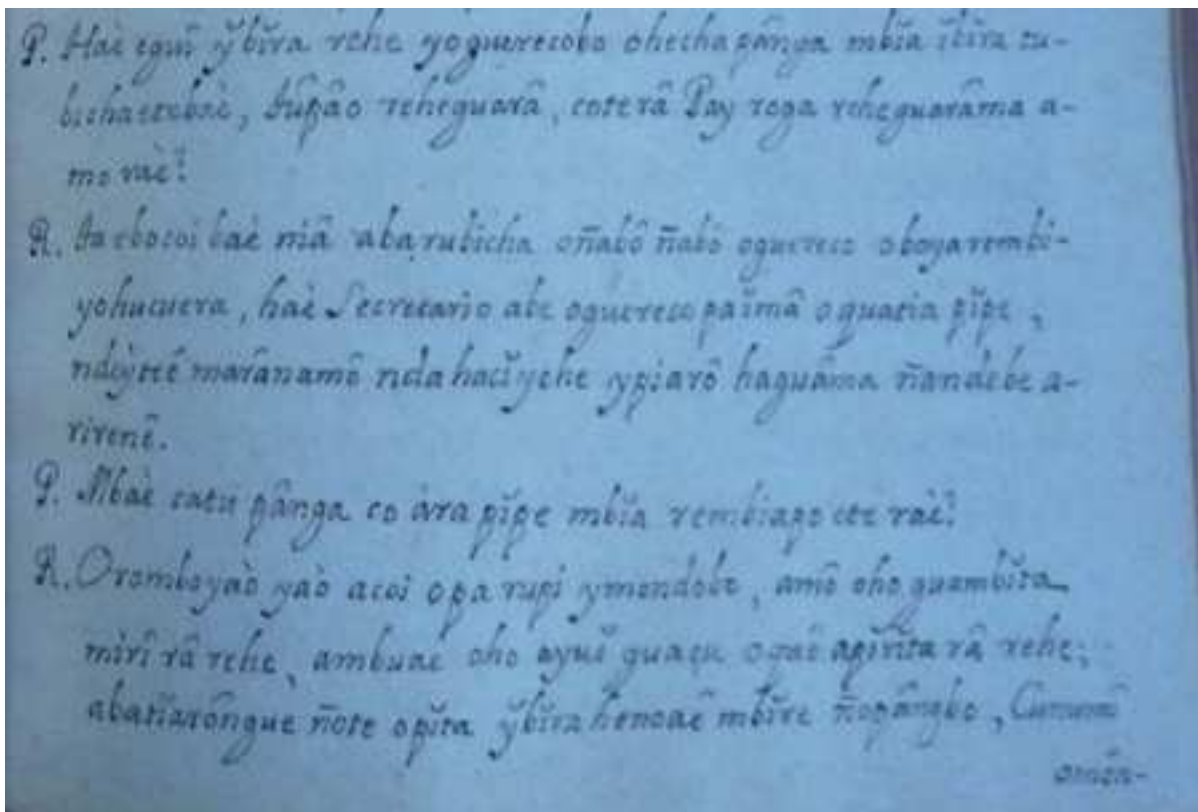 P. Haè eguî y̆bĭra rehe yoguerecobo ohecha pânga mbĭa ĭbĭra tu-
bichaetebaè, tûpâo reheguarâ, coterâ Pay roga reheguarâma a-
mo raè?
R. Aebocoi baè niâ abarubicha oñabô ñabô oguereco oboyarembi-
yohucuera, haè Secretario abe oguereco paĭmâ oquatia pĭpe,
marânamô ndahacĭyche ypiarô haguâma ñandebe a-
rirenê.
P. Mbaè catu pânga co àra pĭpe mbĭa rembiapo ete raè?
R. Oromboyaò yaò acoi opa rupi ymondobo, amô oho guembĭra
mirî râ rehe, ambuae oho guaçu ogaê râ rehe;
ñote opĭta y̆bĭra henoaê mbĭre ñopângbo, Cunumî
omên-